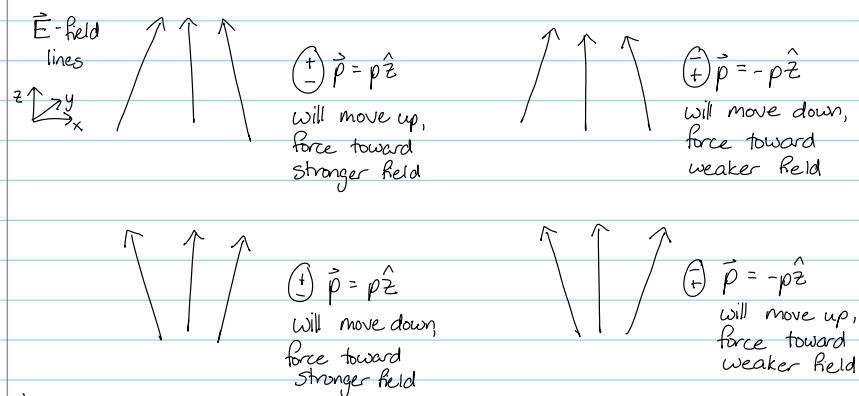 E⃗ - field
lines
z
y
x
+
-
p⃗ = pẑ
will move up,
force toward
stronger field
-
+
p⃗ = -pẑ
will move down,
force toward
weaker field
+
-
p⃗ = pẑ
will move down,
force toward
stronger field
-
+
p⃗ = -pẑ
will move up,
force toward
weaker field